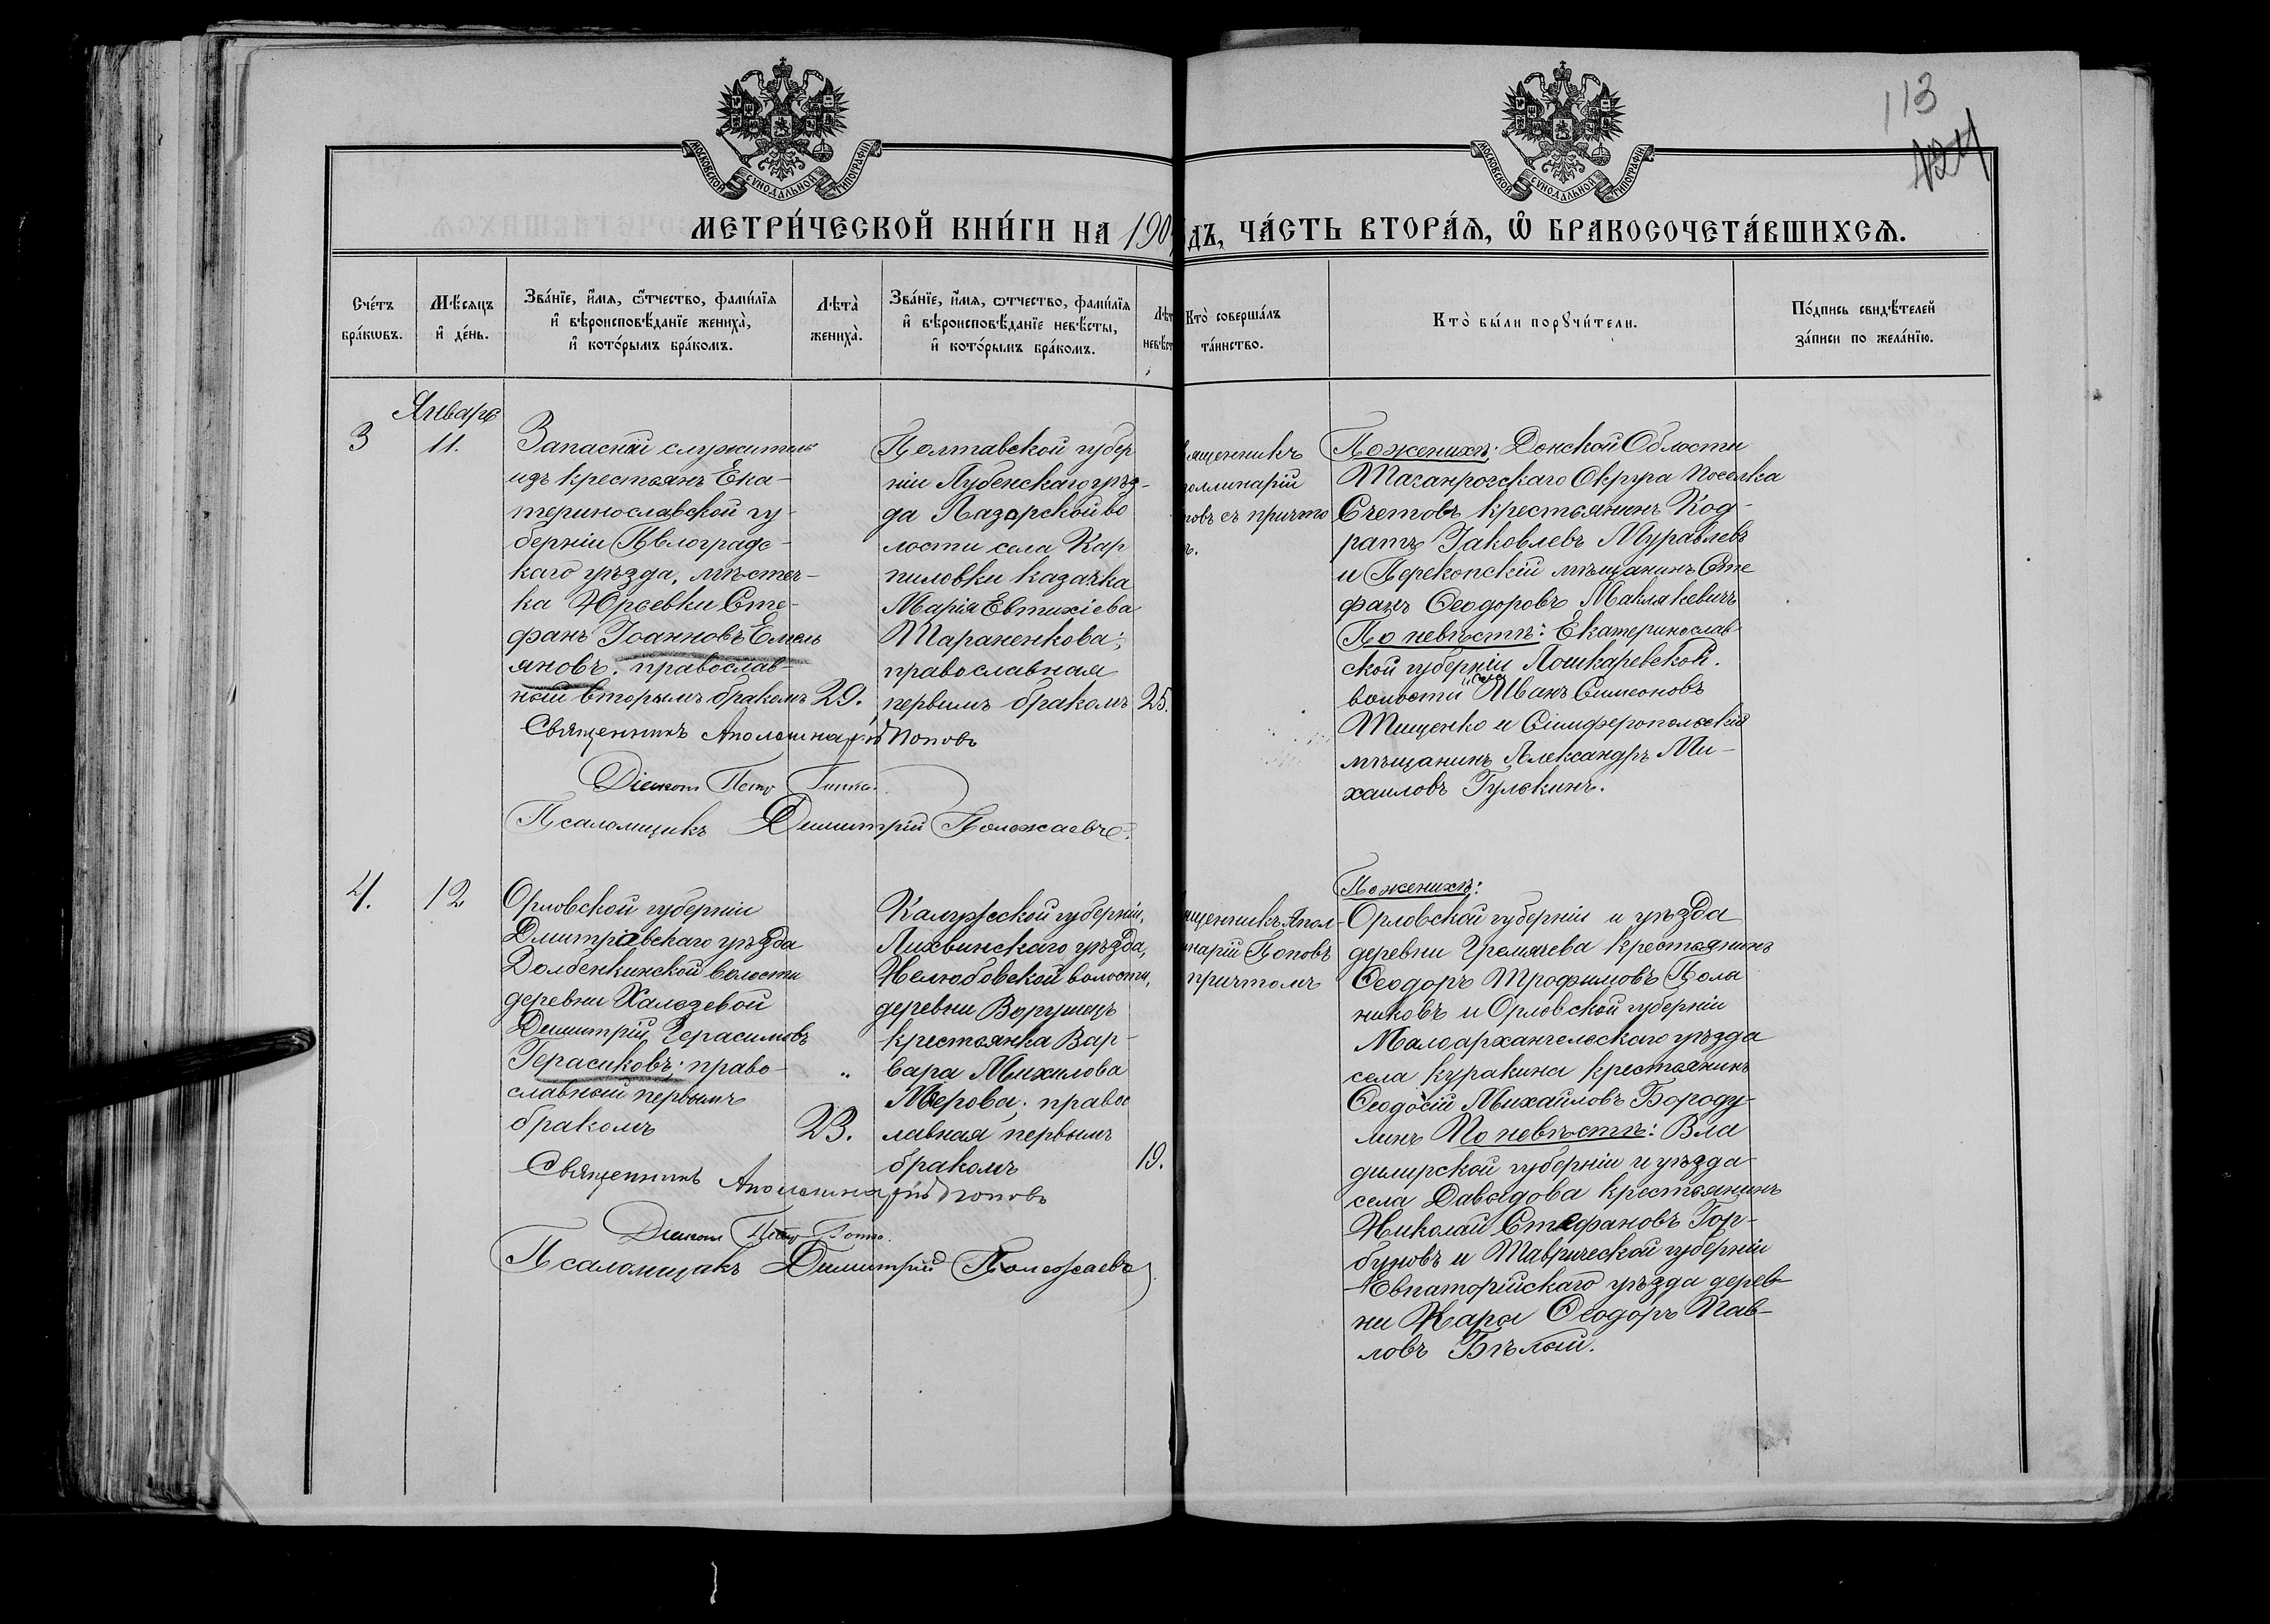 113
124
МОСКОВСКОЙ СУНОДАЛЬНОЙ ТИПОГРАФІИ
МОСКОВСКОЙ СУНОДАЛЬНОЙ ТИПОГРАФІИ
МЕТРИ́ЧЕСКОЙ КНИ́ГИ НА 190 ДЪ, ЧА́СТЬ ВТОРА́Я, Ѽ БРАКОСОЧЕТА́ВШИХСЯ.
Сче́тъ бра́кѡвъ.
Мѣ́сяцъ и҆ де́нь.
Зва́нїе, и҆́мя, ѻ҆́тчество, фамі́лїя
и҆ вѣроисповѣ́данїе жениха̀,
и҆ кото́рымъ бра́комъ.
Лѣта̀ жениха̀.
Зва́нїе, и҆́мя, ѻтчество, фамі́лїя
и҆ вѣроисповѣ́данїе невѣ́сты,
и҆ кото́рымъ бра́комъ.
Лѣт
невѣст
Кто̀ соверша́лъ
та́инство.
Кто̀ бы́ли порꙋчи́тели.
По́дпись свидѣ́телей
за́писи по жела́нїю.
Январь
3
11.
Запасный служитель
изъ крестьянъ Ека-
теринославской гу-
берніи Павлоградс-
каго уѣзда, мѣстеч-
ка Юрьевки Сте-
фанъ Іоанновъ Емель
яновъ, православ-
ный вторымъ бракомъ
29.
Полтавской губер
ніи Лубенскаго уѣз-
да Лазорской во
лости села Кар
пиловки казачка
Марія Евтихіева
Тараненкова;
православная
первымъ бракомъ
25.
ященникъ
поллинарій
повъ съ причто
ъ.
По женихѣ: Донской Области
Таганрогскаго Округа поселка
Счетовъ крестьянинъ Код-
ратъ Іаковлевъ Муравлевъ
и Перекопскій мѣщанинъ Сте
фанъ Ѳеодоровъ Маклякевичъ
По невѣстѣ: Екатеринослав
ской губерніи Лошкаревской
волости Иванъ Симеоновъ
Тищенко и Симферопольскій
мѣщанинъ Александръ Ми-
хаиловъ Гулькинъ.
Священникъ Аполлинарій Поповъ
Діаконъ Петръ
Псаломщикъ Димитрій Полежаевъ.
4.
12
Орловской губерніи
Дмитріевскаго уѣзда
Долбенкинской волости
деревни Халезевой
Димитрій Герасимовъ
Герасиковъ; право-
славный первымъ
бракомъ
23.
Калужской губерніи,
Лихвинскаго уѣзда,
Нелюбовской волости,
деревни Ворушецъ
крестьянка Вар-
вара Михилова
Мерова; право
лавная первымъ
бракомъ
19.
щенникъ Апол-
инарій Поповъ
причтомъ
По женихѣ:
Орловской губерніи и уѣзда
деревни Гремячева крестьянинъ
Ѳеодоръ Трофимовъ Пола
никовъ и Орловской губерніи
Малоархангельскаго уѣзда
села Куракина крестьянинъ
Ѳеодосій Михайловъ Бороду-
линъ По невѣстѣ: Вла
димирской губерніи и уѣзда
села Давыдова крестьянинъ
Николай Стефановъ Гор-
буновъ и Таврической губерніи
Евпаторійскаго уѣзда дерев-
ни Кара Ѳеодоръ Пав-
ловъ Бѣлый.
Священникъ Аполлинарій Поповъ
Діаконъ Петръ
Псаломщикъ Димитрій Полежаевъ